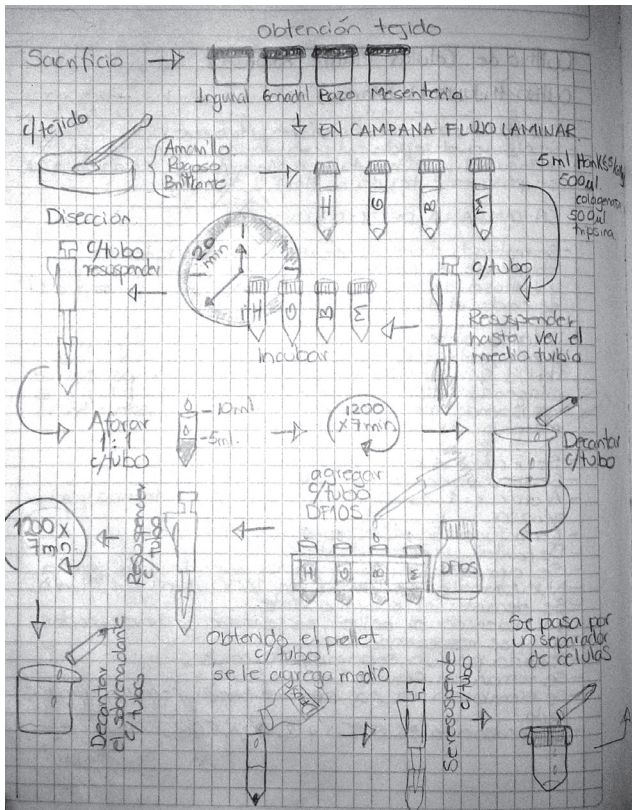 Obtención tejido
Sacrificio
Inguinal Gonadal Bazo Mesenterio
EN CAMPANA FLUJO LAMINAR
c/tejido
Amarillo
Rugoso
Brillante
Disección
H G B M
5ml
500µl
colagenasa
500µl
tripsina
c/tubo
Resuspender
hasta ver el
medio turbio
20
min
H G B M
Incubar
c/tubo
resuspender
Aforar
1:1
c/tubo
-10ml
-5ml.
1200
x7min
Decantar
c/tubo
agregar
c/tubo
DF10S
H G B M
DF10S
Resuspender
c/tubo
1200 x
7min
Decantar
el sobrenadante
c/tubos
Obtenido el pellet
c/tubo
se le agrega medio
Se resuspende
c/tubo
Se pasa por
un separador
de células